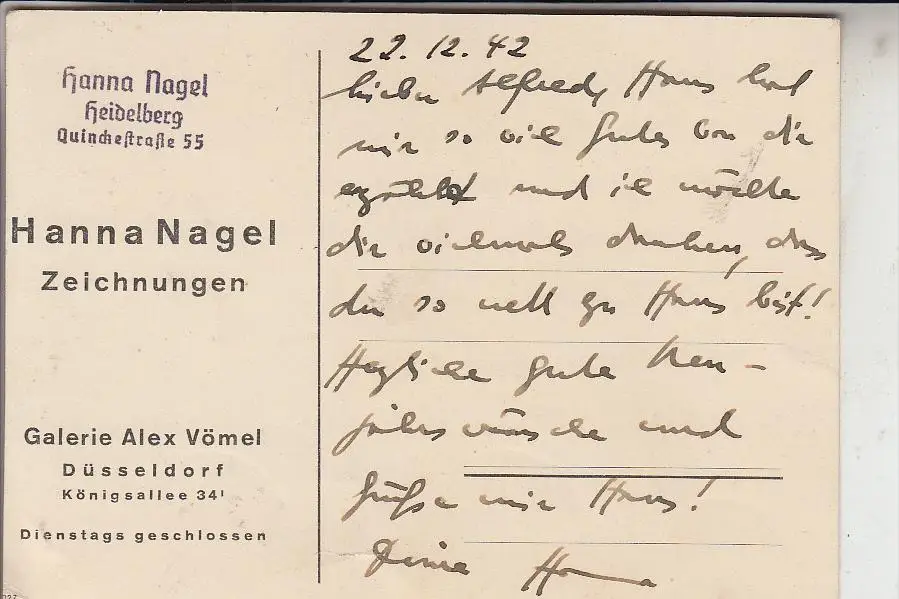 Hanna Nagel
Heidelberg
Quinckestraße 55
Hanna Nagel
Zeichnungen
Galerie Alex Vömel
Düsseldorf
Königsallee 34¹
Dienstags geschlossen
22. 12. 42
Lieber Alfred, Hans hat
mir so viel Gutes von dir
erzählt und ich möchte
dir vielmals danken, dass
du so nett zu Hans bist!
Herzliche gute Neu-
jahrswünsche und
grüße mir Hans!
Deine Hanna